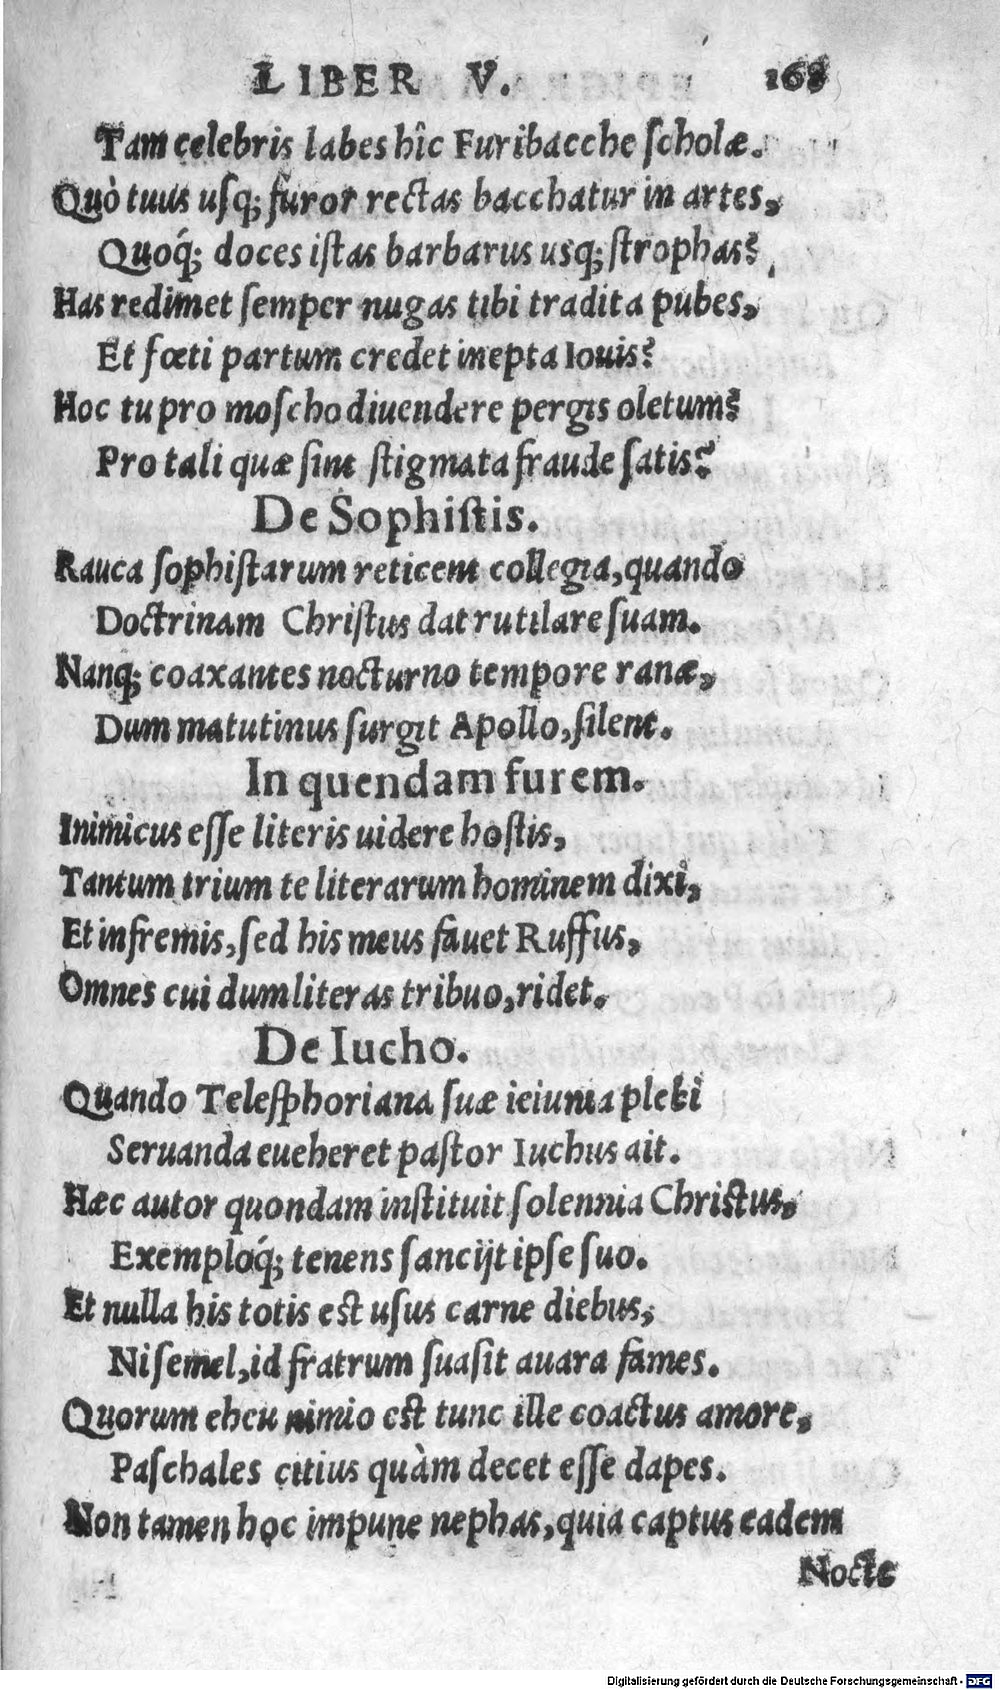 LIBER V. 168
Tam celebris labes hîc Furibacche scholæ.
Quò tuus usq; furor rectas bacchatur in artes,
Quoq́; doces istas barbarus usq; strophas?
Has redimet semper nugas tibi tradita pubes,
Et fœti partum credet inepta Iouis?
Hoc tu pro moscho diuendere pergis oletum?
Pro tali quæ sint stigmata fraude satis?
De Sophistis.
Rauca sophistarum reticent collegia, quando
Doctrinam Christus dat rutilare suam.
Nanq; coaxantes nocturno tempore ranæ,
Dum matutinus surgit Apollo, silent.
In quendam furem.
Inimicus esse literis uidere hostis,
Tantum trium te literarum hominem dixi,
Et infremis, sed his meus fauet Ruffus,
Omnes cui dum literas tribuo, ridet.
De Iucho.
Quando Telesphoriana suæ ieiunia plebi
Seruanda eueheret pastor Iuchus ait.
Hæc autor quondam instituit solennia Christus,
Exemploq́; tenens sancijt ipse suo.
Et nulla his totis est usus carne diebus,
Ni semel, id fratrum suasit auara fames.
Quorum eheu nimio est tunc ille coactus amore,
Paschales citius quàm decet esse dapes.
Non tamen hoc impune nephas, quia captus eadem
Nocte
Digitalisierung gefördert durch die Deutsche Forschungsgemeinschaft - DFG